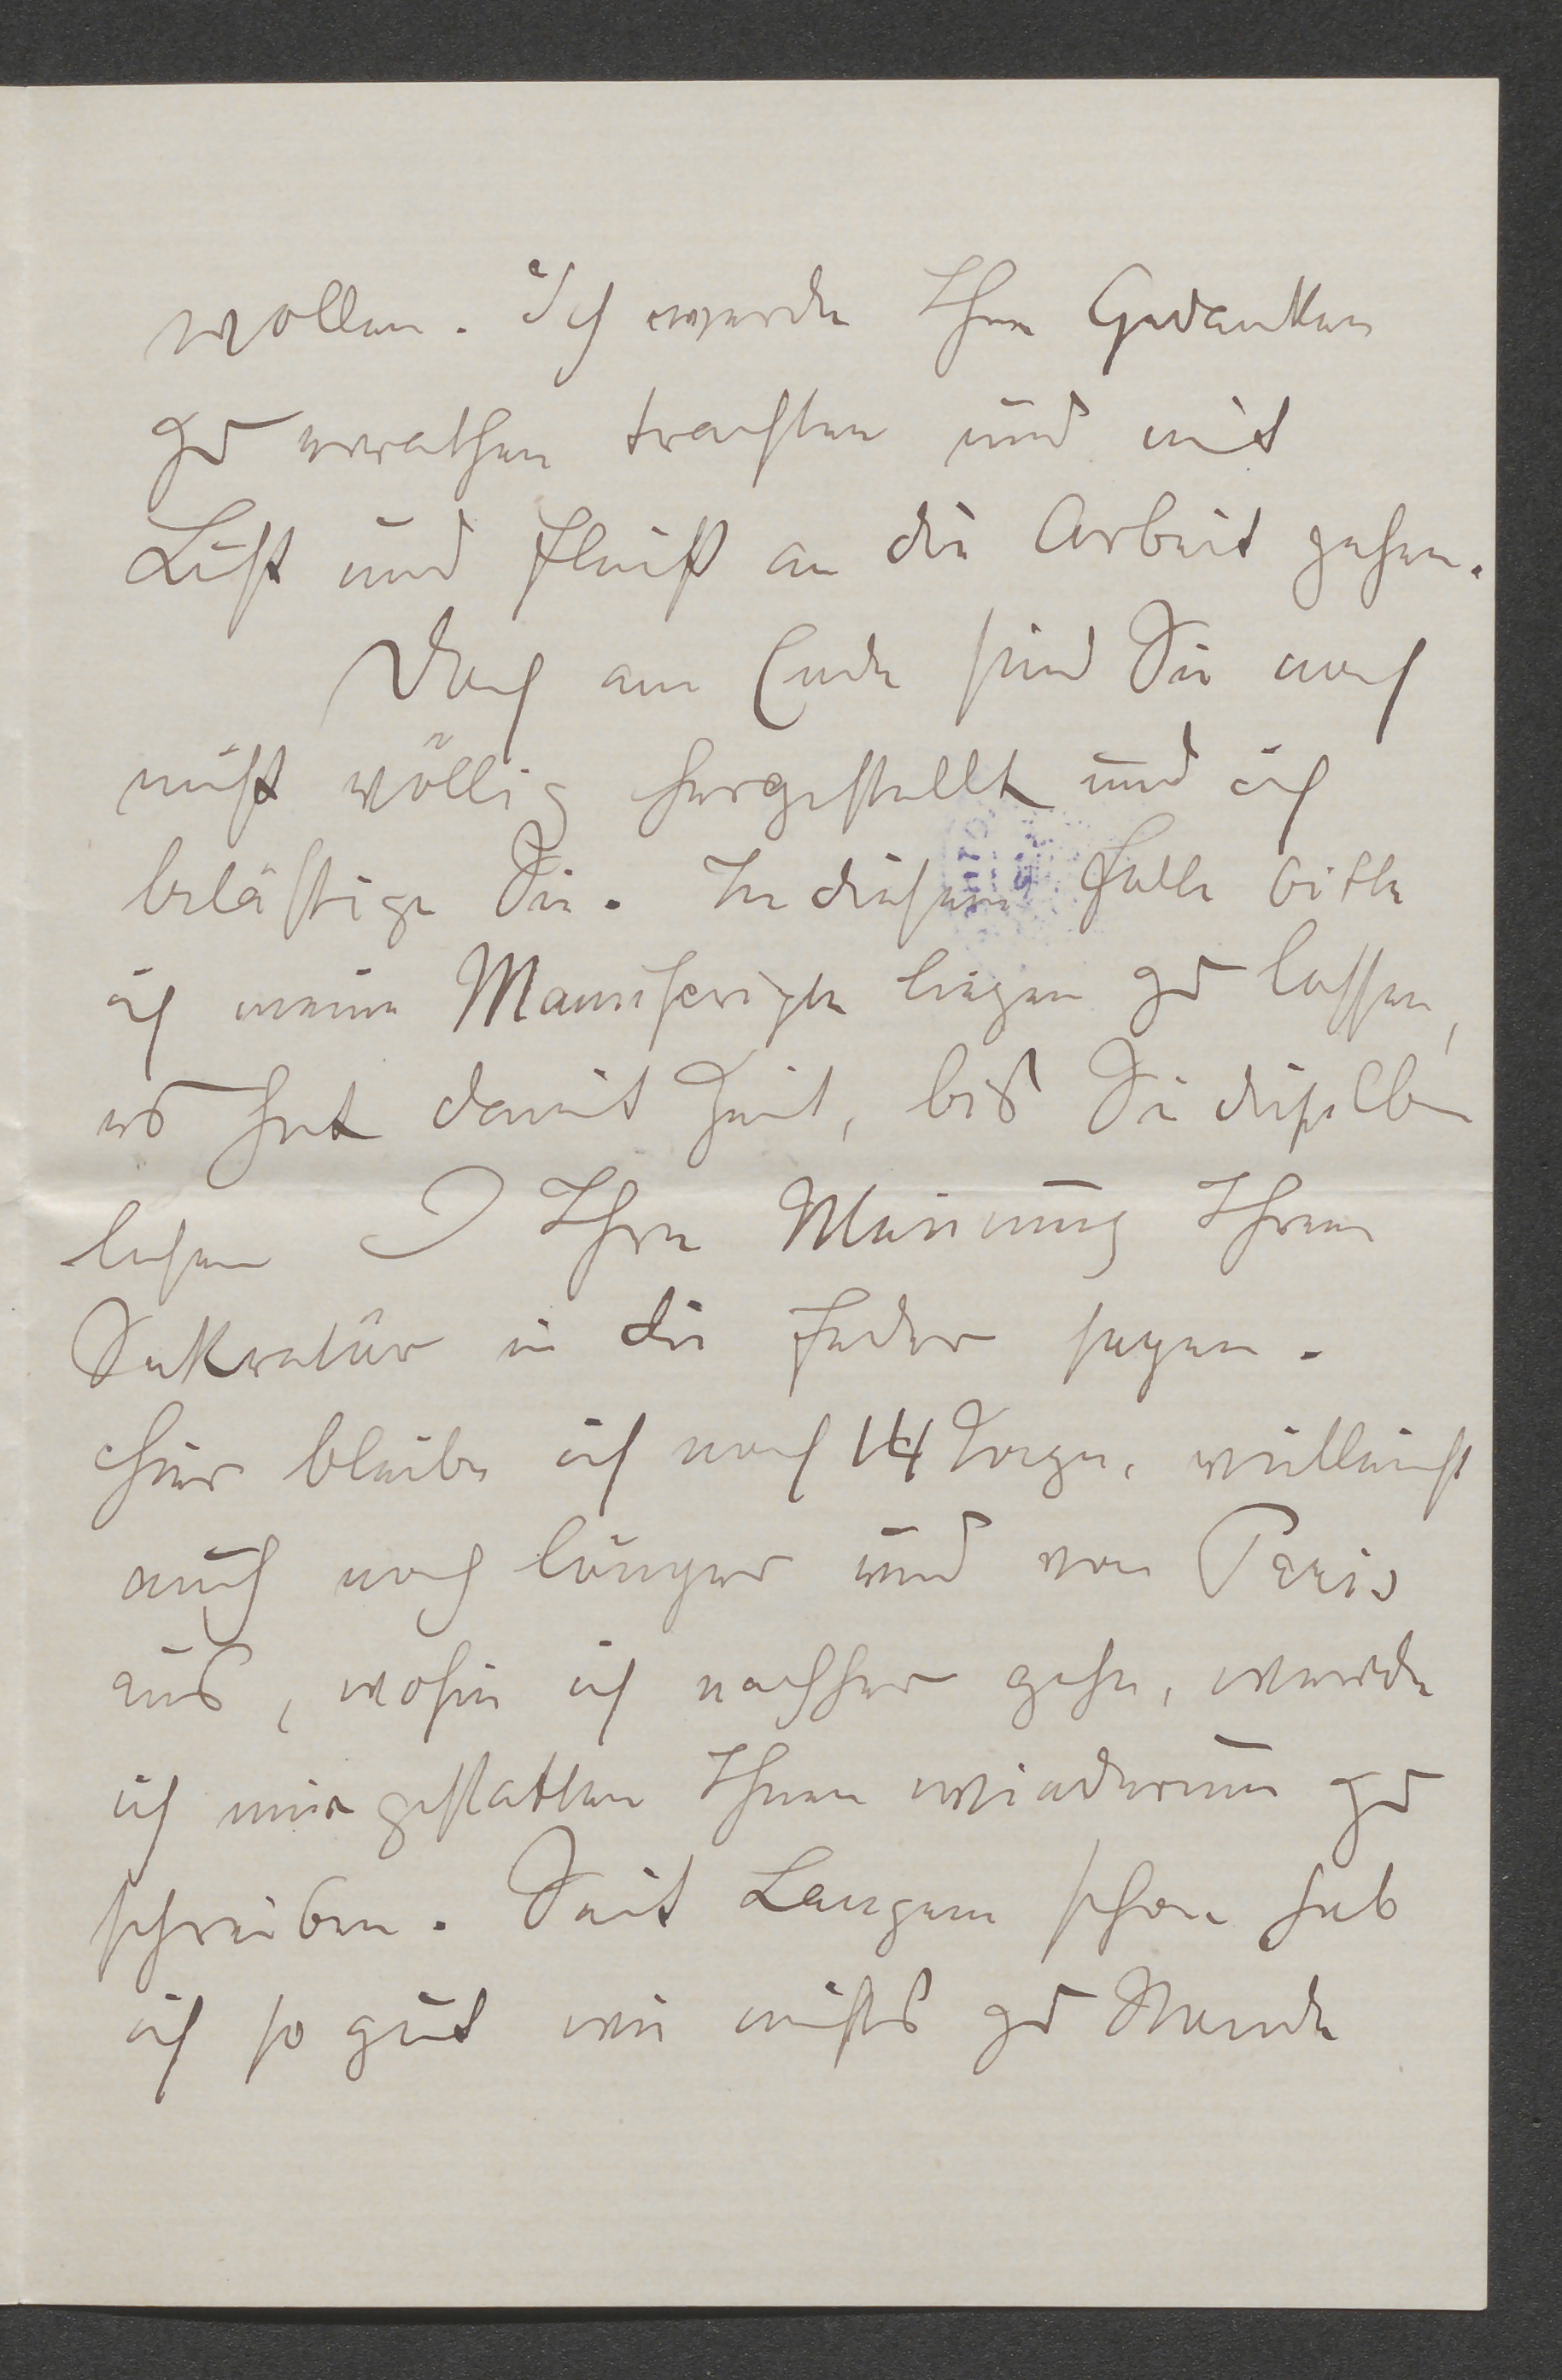 wollen. Ich werde Ihre Gedanken
zu errathen trachten und mit
Lust und Fleiß an die Arbeit gehen.
Doch am Ende sind Sie noch
nicht völlig hergestellt und ich
belästige Sie. In diesem Falle bitte
ich meine Manuscripte liegen zu lassen,
es hat damit Zeit, bis Sie dieselben
lesen & Ihre Meinung Ihrem
Sekretär in die Feder sagen.
Hier bleibe ich noch 14 Tage, vielleicht
auch noch länger und von Paris
aus, wohin ich nachher gehe, werde
ich mir gestatten Ihnen wiederum zu
schreiben. Seit Langem schon hab
ich so gut wie nichts zu Stande